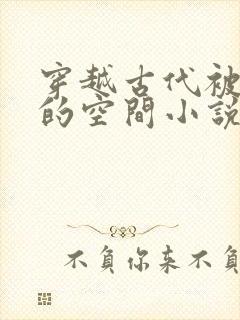 穿越古代被
的空間小説
不負你来不負